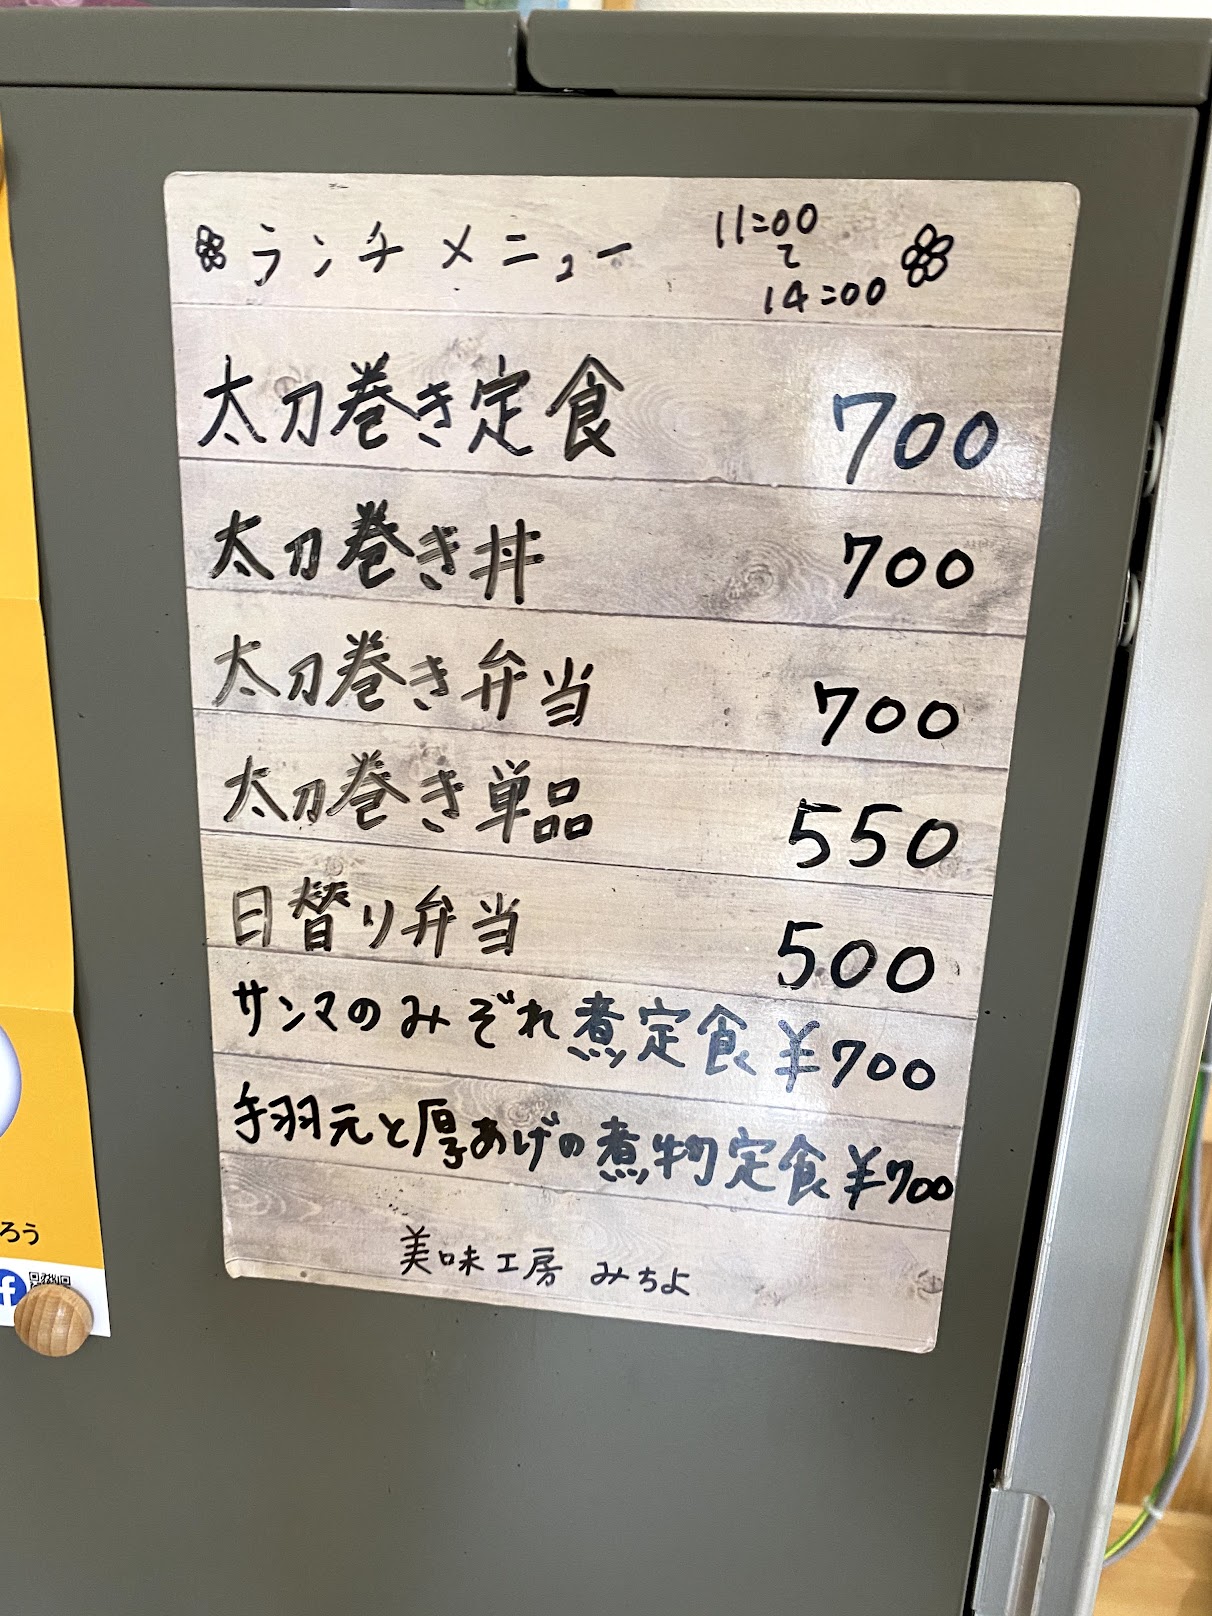 ランチメニュー 11:00
〜
14:00
太刀巻き定食 700
太刀巻き丼 700
太刀巻き弁当 700
太刀巻き単品 550
日替り弁当 500
サンマのみぞれ煮定食 ¥700
手羽元と厚あげの煮物定食 ¥700
美味工房 みちよ
ろう
f